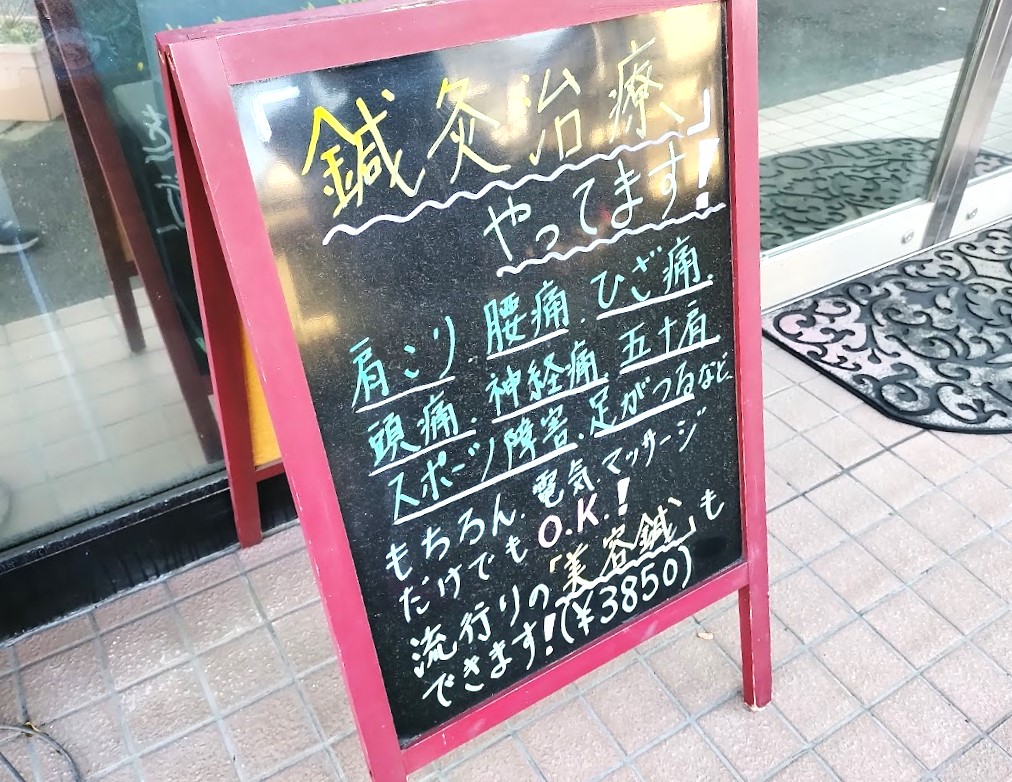 「鍼灸治療」
やってます!
肩こり 腰痛.ひざ痛.
頭痛.神経痛.五十肩
スポーツ障害.足がつるなど
もちろん.電気マッサージ
だけでもO.K.!
流行りの「美容鍼」も
できます!(¥3850)